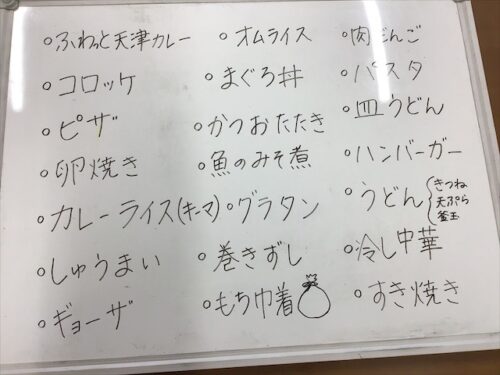 ○ふわっと天津カレー
○コロッケ
○ピザ
○卵焼き
○カレーライス(キーマ)
○しゅうまい
○ギョーザ
○オムライス
○まぐろ丼
○かつおたたき
○魚のみそ煮
○グラタン
○巻きずし
○もち巾着
○肉だんご
○パスタ
○皿うどん
○ハンバーガー
○うどん{きつね
天ぷら
釜玉
○冷し中華
○すき焼き